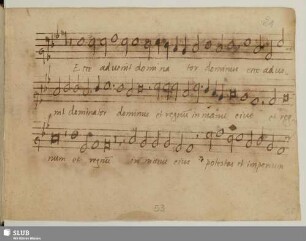 Ecce advenit domina tor dominus ecce adve
nit dominator dominus et regnum in manu eius et reg
num et regnum in manu eius potestas et imperium
53
SLUB